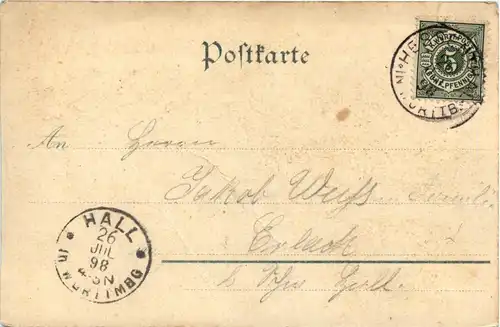 Postkarte
5
PFENNIG
WÜRTTBG
An Herrn
Jakob Weiß
Erlach
b. Schw. Hall.
HALL
26
JUL
98
4-5N
in WÜRTTMBG